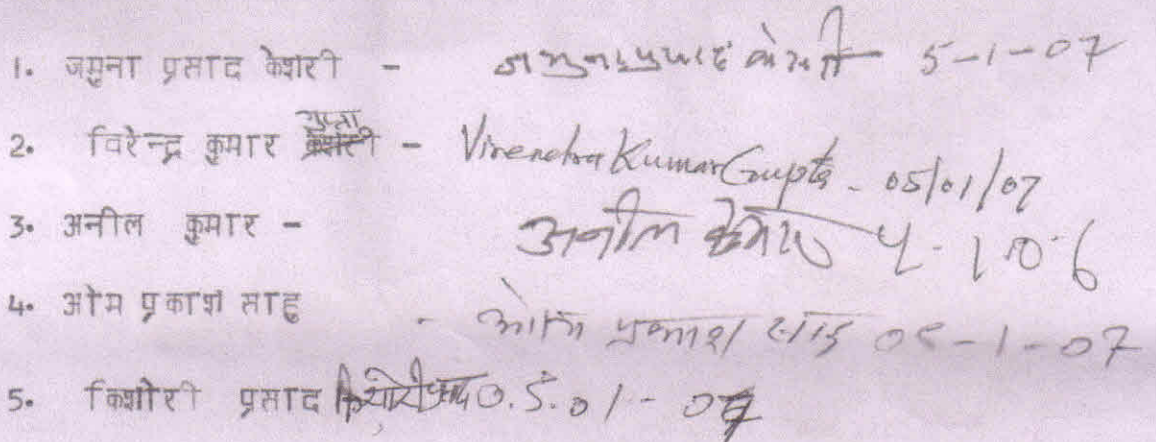 1. जमुना प्रसाद केशरी - जमुना प्रसाद केशरी 5-1-07
2. विरेन्द्र कुमार गुप्ता - Virendra Kumar Gupta - 05/01/07
3. अनील कुमार - अनील कुमार
4. ओम प्रकाश साहु - ओम प्रकाश साहु 05-1-07
5. किशोरी प्रसाद किशोरी प्रसाद 0.5.01-07